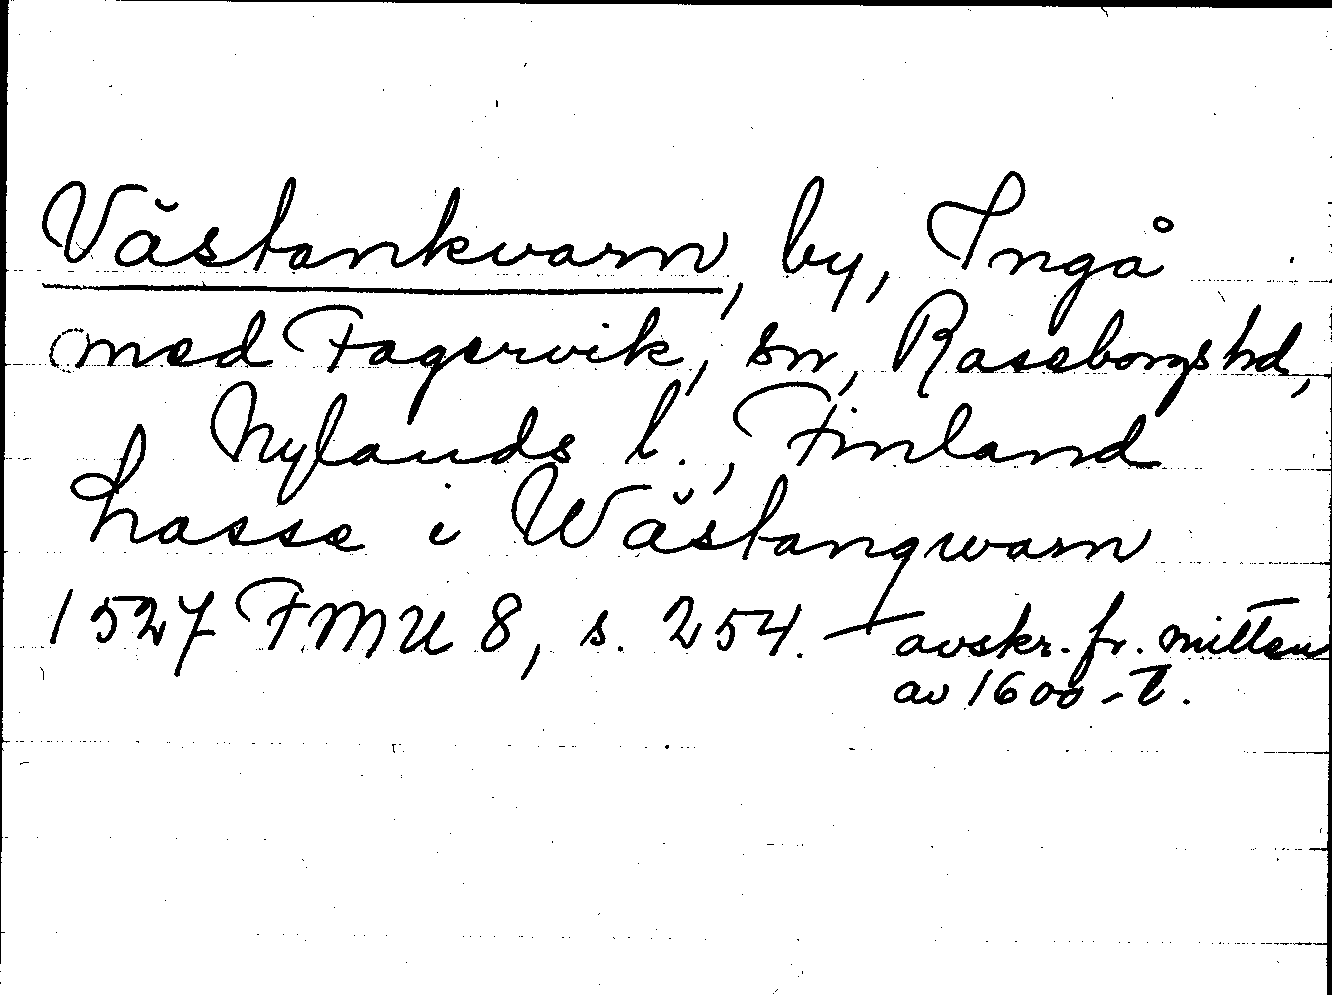 Västankvarn, by, Ingå
med Fagervik, sn, Raseborgs hd,
Nylands l., Finland
hasse i Wästangwarn
1527 FMU 8, s. 254. – avskr. fr. mitten
av 1600-t.